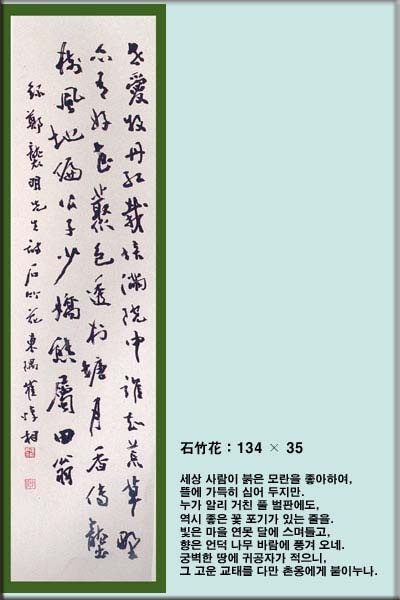 世愛牧丹紅栽培滿院中誰知荒草野
亦有好花叢色透村塘月香傳壟
樹風地偏公子少嬌態屬田翁
錄鄭襲明先生詩石竹花東隅崔
石竹花 : 134 × 35
세상 사람이 붉은 모란을 좋아하여,
뜰에 가득히 심어 두지만.
누가 알리 거친 풀 벌판에도,
역시 좋은 꽃 포기가 있는 줄을.
빛은 마을 연못 달에 스며들고,
향은 언덕 나무 바람에 풍겨 오네.
궁벽한 땅에 귀공자가 적으니,
그 고운 교태를 다만 촌옹에게 붙이누나.